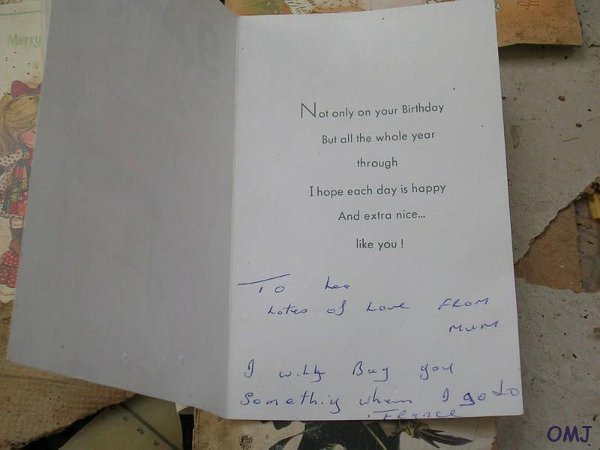 Merry
Not only on your Birthday
But all the whole year
through
I hope each day is happy
And extra nice...
like you !
To Len
Lotes of Love From
Mum
I willy Buy you
Somethiy when I go to
France
OMJ